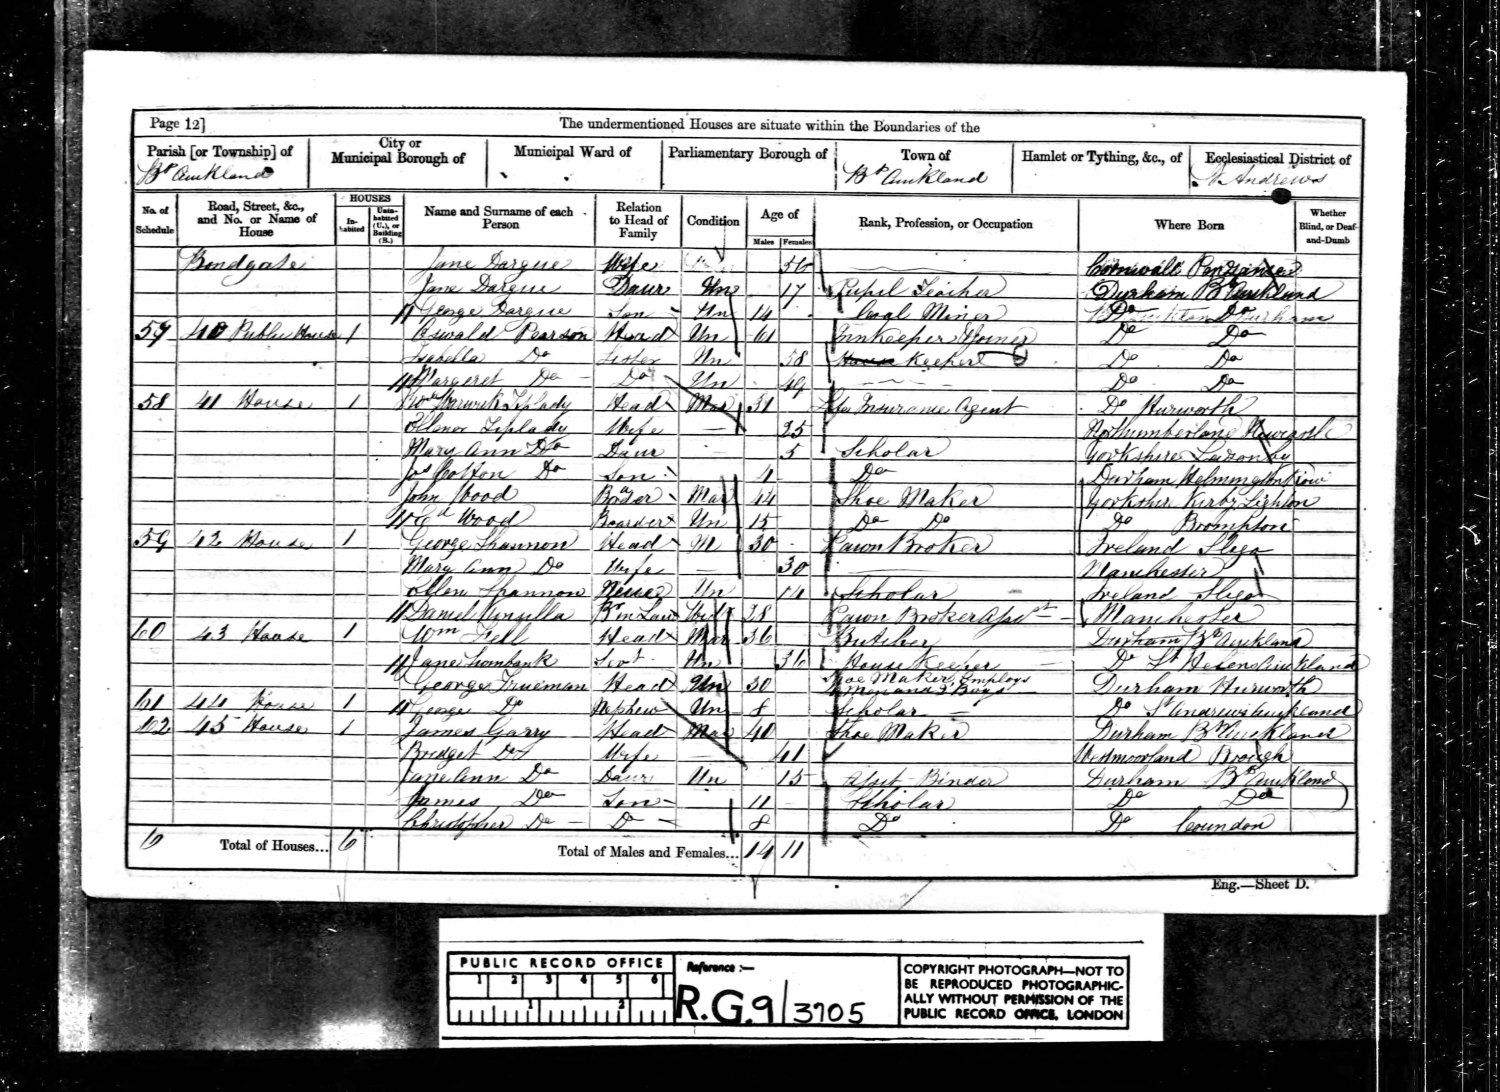 Page 12]
The undermentioned Houses are situate within the Boundaries of the
Parish [or Township] of City or Municipal Borough of Municipal Ward of Parliamentary Borough of Town of Hamlet or Tything, &c., of Ecclesiastical District of
Bp Auckland Bp Auckland St Andrews
No. of Schedule Road, Street, &c., and No. or Name of House HOUSES Inhabited Uninhabited (U.), or Building (B.) Name and Surname of each Person Relation to Head of Family Condition Age of Males Females Rank, Profession, or Occupation Where Born Whether Blind, or Deaf-and-Dumb
Bondgate Jane Dargue Wife 56 Cornwall Penzance
Jane Dargue Daur Un 17 Pupil Teacher Durham Bp Auckland
George Dargue Son Un 14 Coal Miner Do Do
40 Public House 1 Oswald Pearson Head Un 61 Innkeeper & Joiner Do Do
Isabella Do Sister Un 58 House Keeper Do Do
Margeret Do Do Un 49 Do Do
58 41 House 1 Warwick Tiplady Head Mar 31 Life Insurance Agent Do Hurworth
Ellenor Tiplady Wife 25 Northumberland Newcastle
Mary Ann Do Daur 5 Scholar Yorkshire
Jos Cotton Do Son 4 Do Durham Helmington Row
John Wood Boarder Mar 44 Shoe Maker Yorkshire
Ed Wood Boarder Un 15 Do Do Do Brompton
59 42 House 1 George Shannon Head M 30 Pawn Broker Ireland Sligo
Mary Ann Do Wife 30 Manchester
Ellen Shannon Neice Un 14 Scholar Ireland Sligo
Daniel Br in Law Wid 28 Pawn Broker Asst Manchester
60 43 House 1 Wm Fell Head Mar 36 Butcher Durham Bp Auckland
Jane Servt Un 36 House Keeper Do St Helens Auckland
George Trueman Head Un 30 Shoe Maker Employs Men and 2 Boys Durham Hurworth
61 44 House 1 George Do Nephew Un 8 Scholar Do St Andrews Auckland
62 45 House 1 James Garry Head Mar 40 Shoe Maker Durham Bp Auckland
Bridget Do Wife 41 Westmoorland Brough
Jane Ann Do Daur Un 15 Binder Durham Bp Auckland
James Do Son 11 Scholar Do Do
Christopher Do Do 8 Do Do Coundon
6 Total of Houses... 6 Total of Males and Females... 14 11
Eng.—Sheet D.
PUBLIC RECORD OFFICE
1 2 3 4 5 6
1 2
Reference :—
R.G. 9/3705
COPYRIGHT PHOTOGRAPH—NOT TO
BE REPRODUCED PHOTOGRAPHIC-
ALLY WITHOUT PERMISSION OF THE
PUBLIC RECORD OFFICE, LONDON